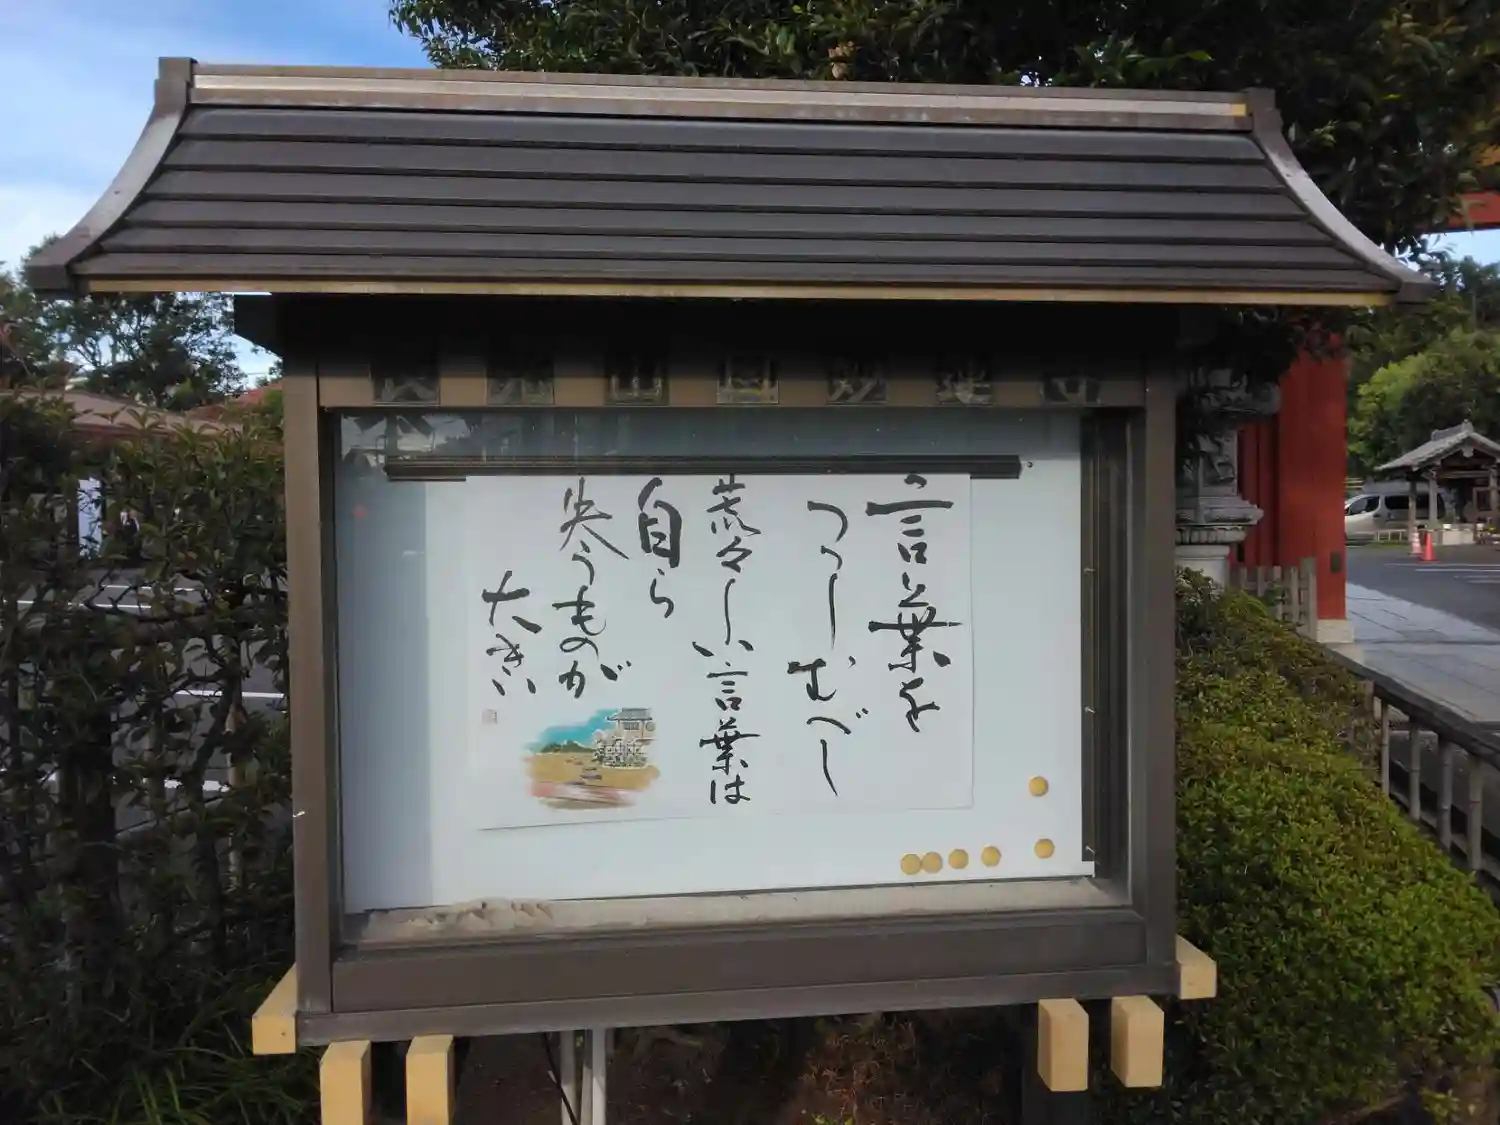 言葉を
つつしむべし
荒々しい言葉は
自ら
失うものが
大きい